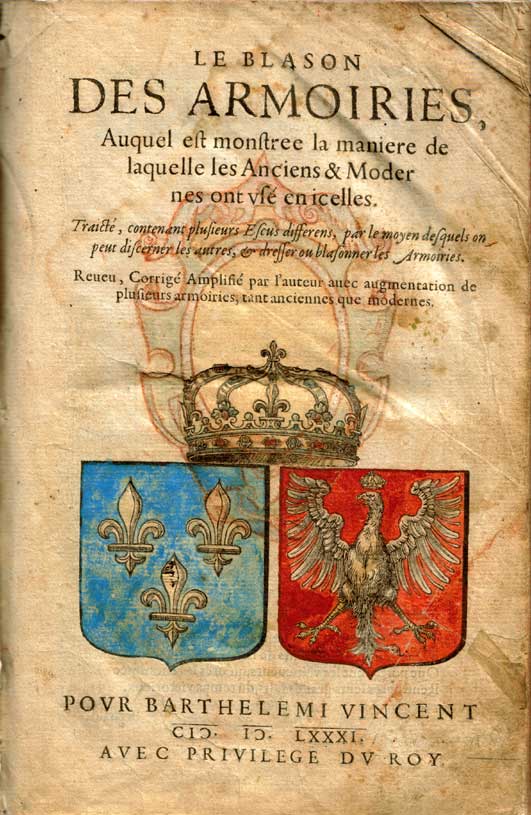 LE BLASON
DES ARMOIRIES,
Auquel eſt monſtree la maniere de
laquelle les Anciens & Moder
nes ont vſé en icelles.
Traicté, contenant pluſieurs Eſcus differens, par le moyen deſquels on
peut diſcerner les autres, & dreſſer ou blaſonner les Armoiries.
Reueu, Corrigé Amplifié par l'auteur auec augmentation de
pluſieurs armoiries, tant anciennes que modernes.
POVR BARTHELEMI VINCENT
CIↃ. IↃ. LXXXI.
AVEC PRIVILEGE DV ROY